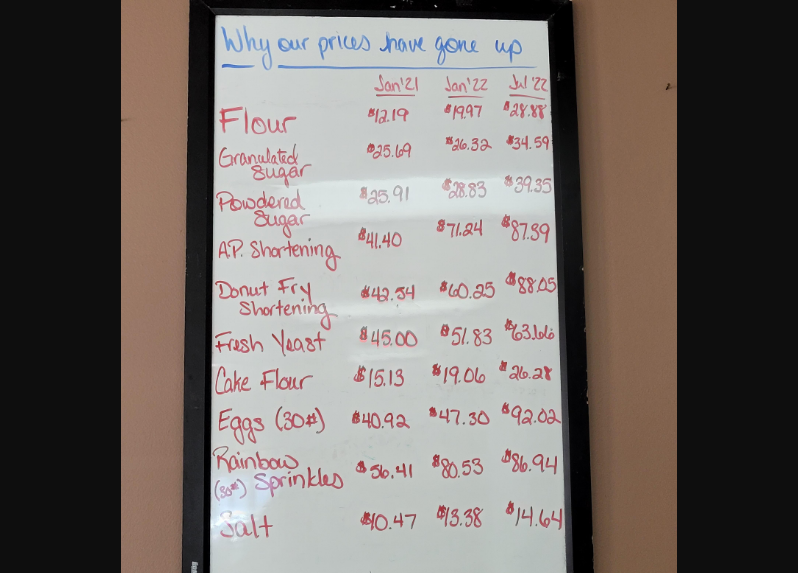 Why our prices have gone up
Jan'21 Jan'22 Jul '22
Flour $12.19 $19.97 $28.88
Granulated $25.69 $26.32 $34.59
Sugar
Powdered $25.91 $28.83 $39.35
Sugar
A.P. Shortening $41.40 $71.24 $87.39
Donut Fry $42.54 $60.25 $88.05
Shortening
Fresh Yeast $45.00 $51.83 $63.66
Cake Flour $15.13 $19.06 $26.28
Eggs (30#) $40.92 $47.30 $92.02
Rainbow $56.41 $80.53 $86.94
(30#) Sprinkles
Salt $10.47 $13.38 $14.64